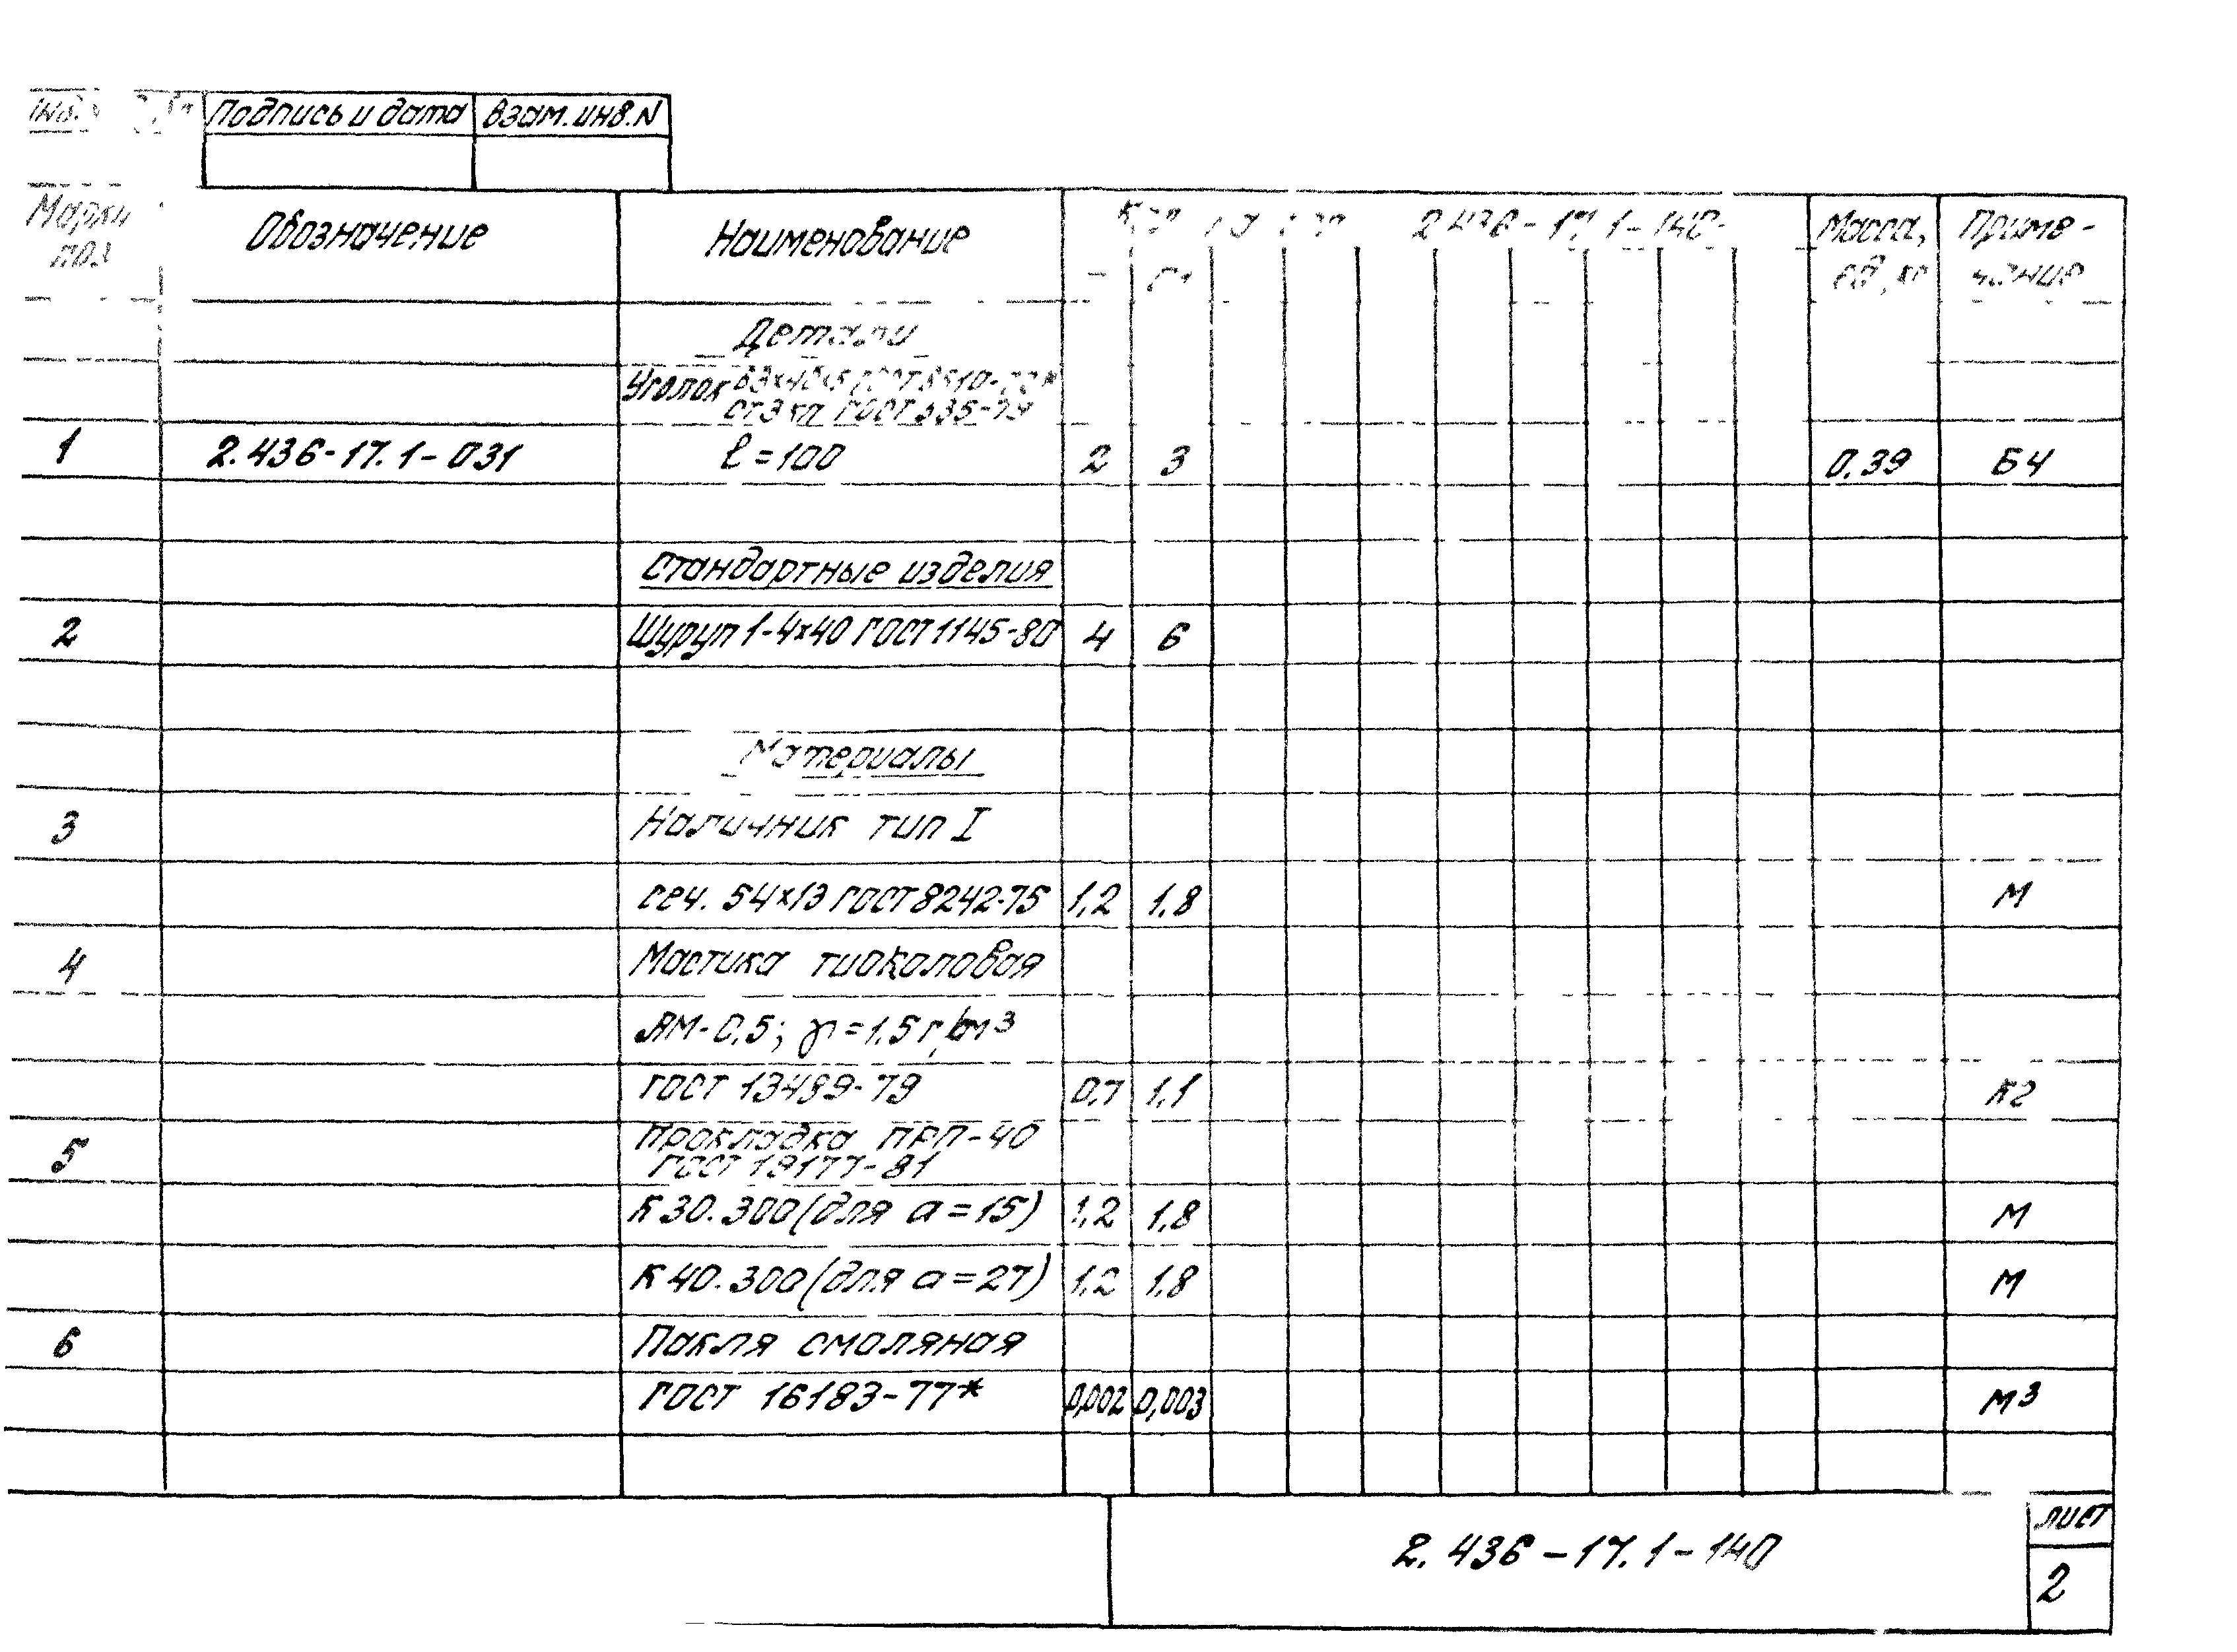 Подпись и дата Взам. инв. N
Марки Обозначение Наименование 2.436-17.1-140- Масса, Приме-
поз ед., кг чание
- 01
Детали
Уголок 63×40×5 ГОСТ 8510-72*
Ст3кп ГОСТ 535-79
1 2.436-17.1-031 ℓ=100 2 3 0,39 БЧ
Стандартные изделия
2 Шуруп 1-4×40 ГОСТ 1145-80 4 6
Материалы
3 Наличник тип I
сеч. 54×13 ГОСТ 8242-75 1,2 1,8 м
4 Мастика тиоколовая
АМ-0,5; γ=1,5 г/см³
ГОСТ 13489-79 0,7 1,1 кг
5 Прокладка ПРП-40
ГОСТ 19177-81
К30.300 (для а=15) 1,2 1,8 м
К40.300 (для а=27) 1,2 1,8 м
6 Пакля смоляная
ГОСТ 16183-77* 0,002 0,003 м³
2.436-17.1-140
лист
2